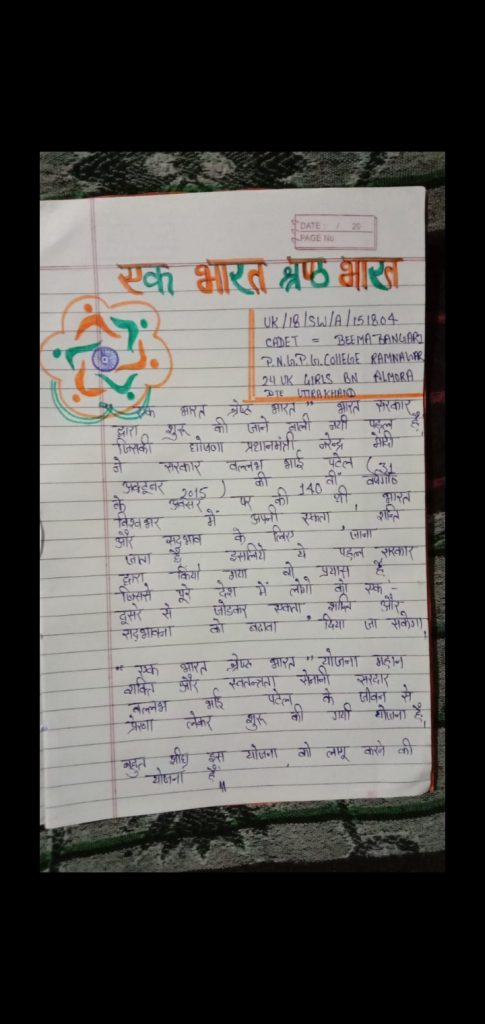 DATE: / 20
PAGE No
एक भारत श्रेष्ठ भारत
UK/18/SW/A/151804
CADET = BEEMA BANGARI
P.N.G.P.G. COLLEGE RAMNAGAR
24 UK GIRLS BN ALMORA
DTE UTTRAKHAND
"एक भारत श्रेष्ठ भारत" भारत सरकार
द्वारा शुरू की जाने वाली नयी पहल है,
जिसकी घोषणा प्रधानमंत्री नरेन्द्र मोदी
ने सरकार वल्लभ भाई पटेल (31
अक्टूबर 2015) की 140 वीं वर्षगाँठ
के अवसर पर की थी, भारत
विश्वभर में अपनी एकता, शक्ति
और सद्भाव के लिए जाना
जाता है, इसलिये ये पहल सरकार
द्वारा किया गया वो प्रयास है,
जिससे पूरे देश में लोगों को एक-
दूसरे से जोडकर एकता शक्ति और
सद्भावना को बढावा दिया जा सकेगा,
"एक भारत श्रेष्ठ भारत" योजना महान
व्यक्ति और स्वतन्त्रता सेनानी सरदार
वल्लभ भाई पटेल के जीवन से
प्रेरणा लेकर शुरू की गयी योजना है,
बहुत शीघ्र इस योजना को लागू करने की
योजना है॥